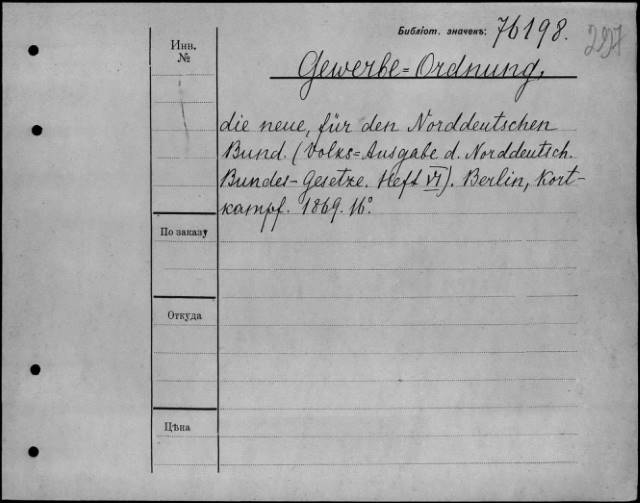 Библіот. значекъ: 76198.
297
Инв.
№
Gewerbe=Ordnung,
die neue, für den Norddeutschen
Bund. (Volks=Ausgabe d. Norddeutsch.
Bundes-Gesetze. Heft VI). Berlin, Kort-
kampf. 1869. 16°.
По заказу
Откуда
Цѣна